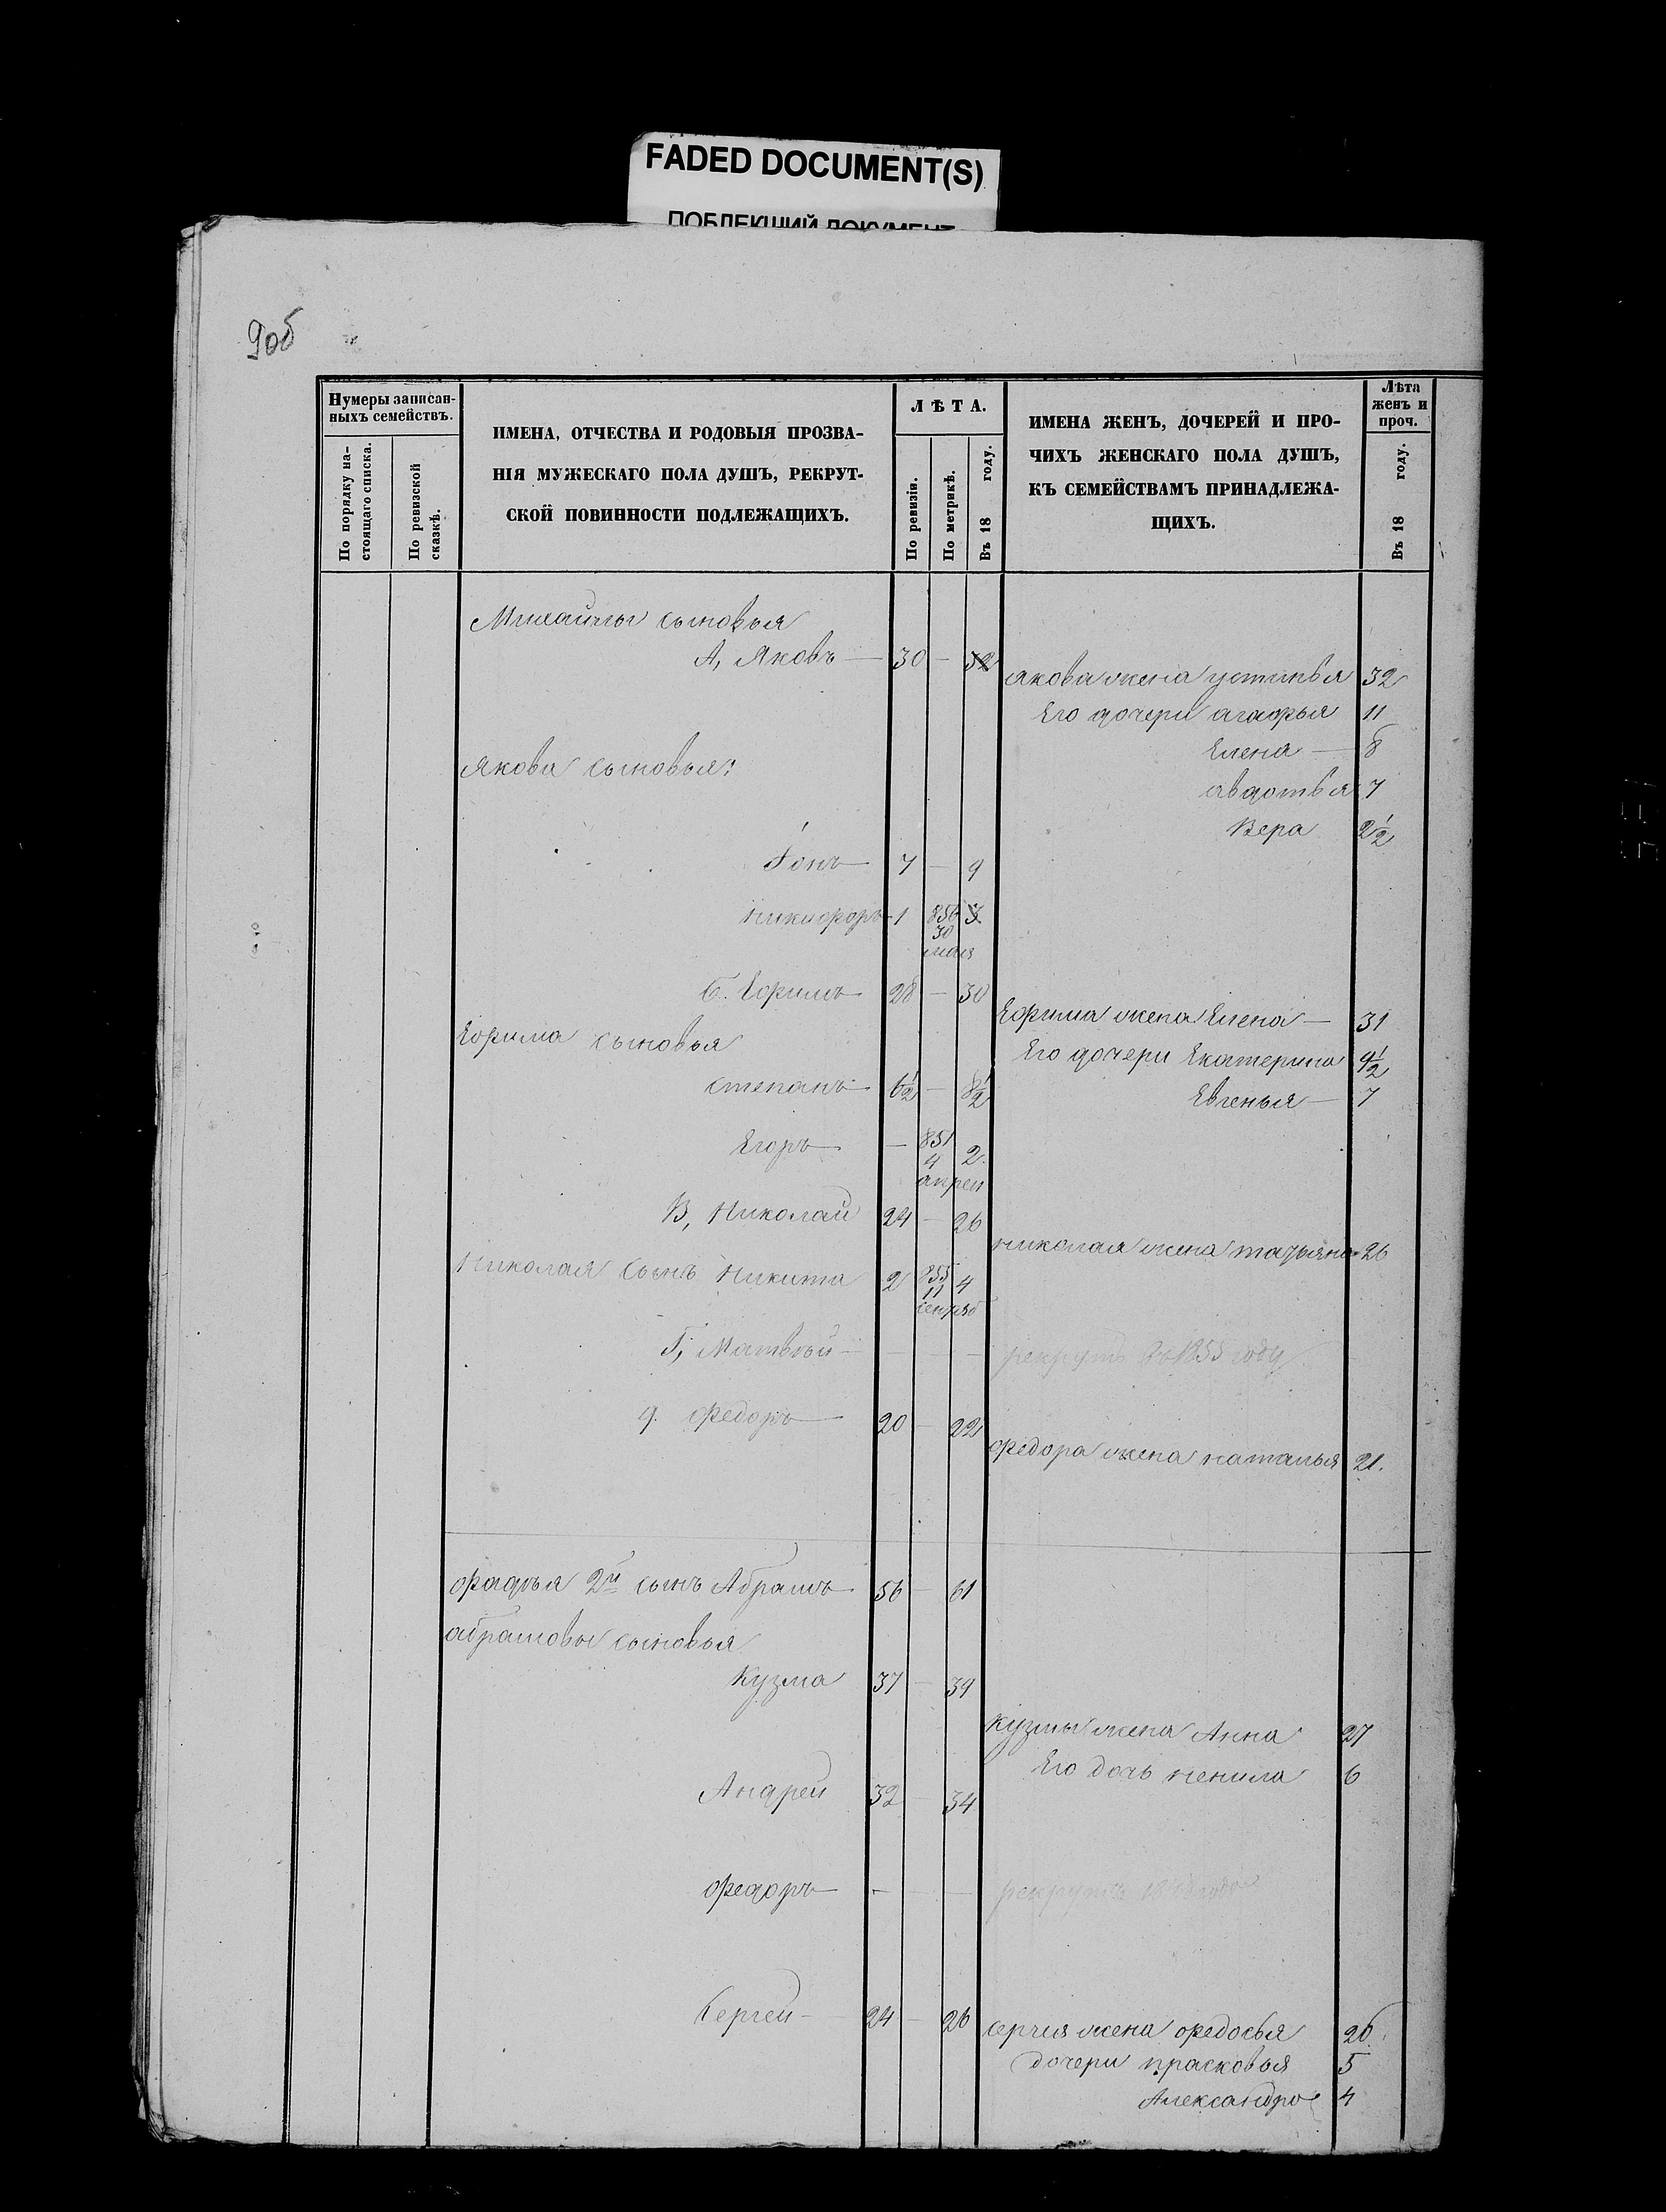 FADED DOCUMENT(S)
ПОБЛЕКШИЙ ДОКУМЕНТ
9об
Нумеры записан-
ныхъ семействъ.
По порядку на-
стоящаго списка.
По ревизской
сказкѣ.
ИМЕНА, ОТЧЕСТВА И РОДОВЫЯ ПРОЗВА-
НІЯ МУЖЕСКАГО ПОЛА ДУШЪ, РЕКРУТ-
СКОЙ ПОВИННОСТИ ПОДЛЕЖАЩИХЪ.
ЛѢТА.
По ревизіи.
По метрикѣ.
Въ 18 году.
ИМЕНА ЖЕНЪ, ДОЧЕРЕЙ И ПРО-
ЧИХЪ ЖЕНСКАГО ПОЛА ДУШЪ,
КЪ СЕМЕЙСТВАМЪ ПРИНАДЛЕЖА-
ЩИХЪ.
Лѣта
женъ и
проч.
Въ 18 году.
Михайлы сыновья
А, Яковъ — 30 — 32
якова жена устинья 32
Его дочери агафья 11
Елена — 8
Якова сыновья:
авдотья 7
Вера 2 1/2
Іонъ — 7 — 9
никифоръ — 1 856 3
30
мая
Б. Ефимъ 28 — 30
Ефима жена Елена — 31
Ефима сыновья
Его дочери Екатерина 9 1/2
степанъ — 6 1/2 — 8 1/2
Евгенья — 7
Егоръ — — 857 2.
4
апрел
В, Николай 24 — 26
николая жена татьяна 26
Николая сынъ Никита 2 855 4
11
сентяб
Г, Матвѣй — — — —
рекрутъ въ 1855 году
д. Федоръ — 20 — 22
федора жена наталья 21.
фадѣя 2й сынъ Абрамъ 56 — 61
абрамовы сыновья
Кузма 37 — 39
кузмы жена Анна 27
Его дочь ненила 6
Андрей 32 — 34
Федоръ — — — —
рекрутъ
Сергей — 24 — 26
сергея жена федосья 26.
дочери прасковья 5
Александра 4